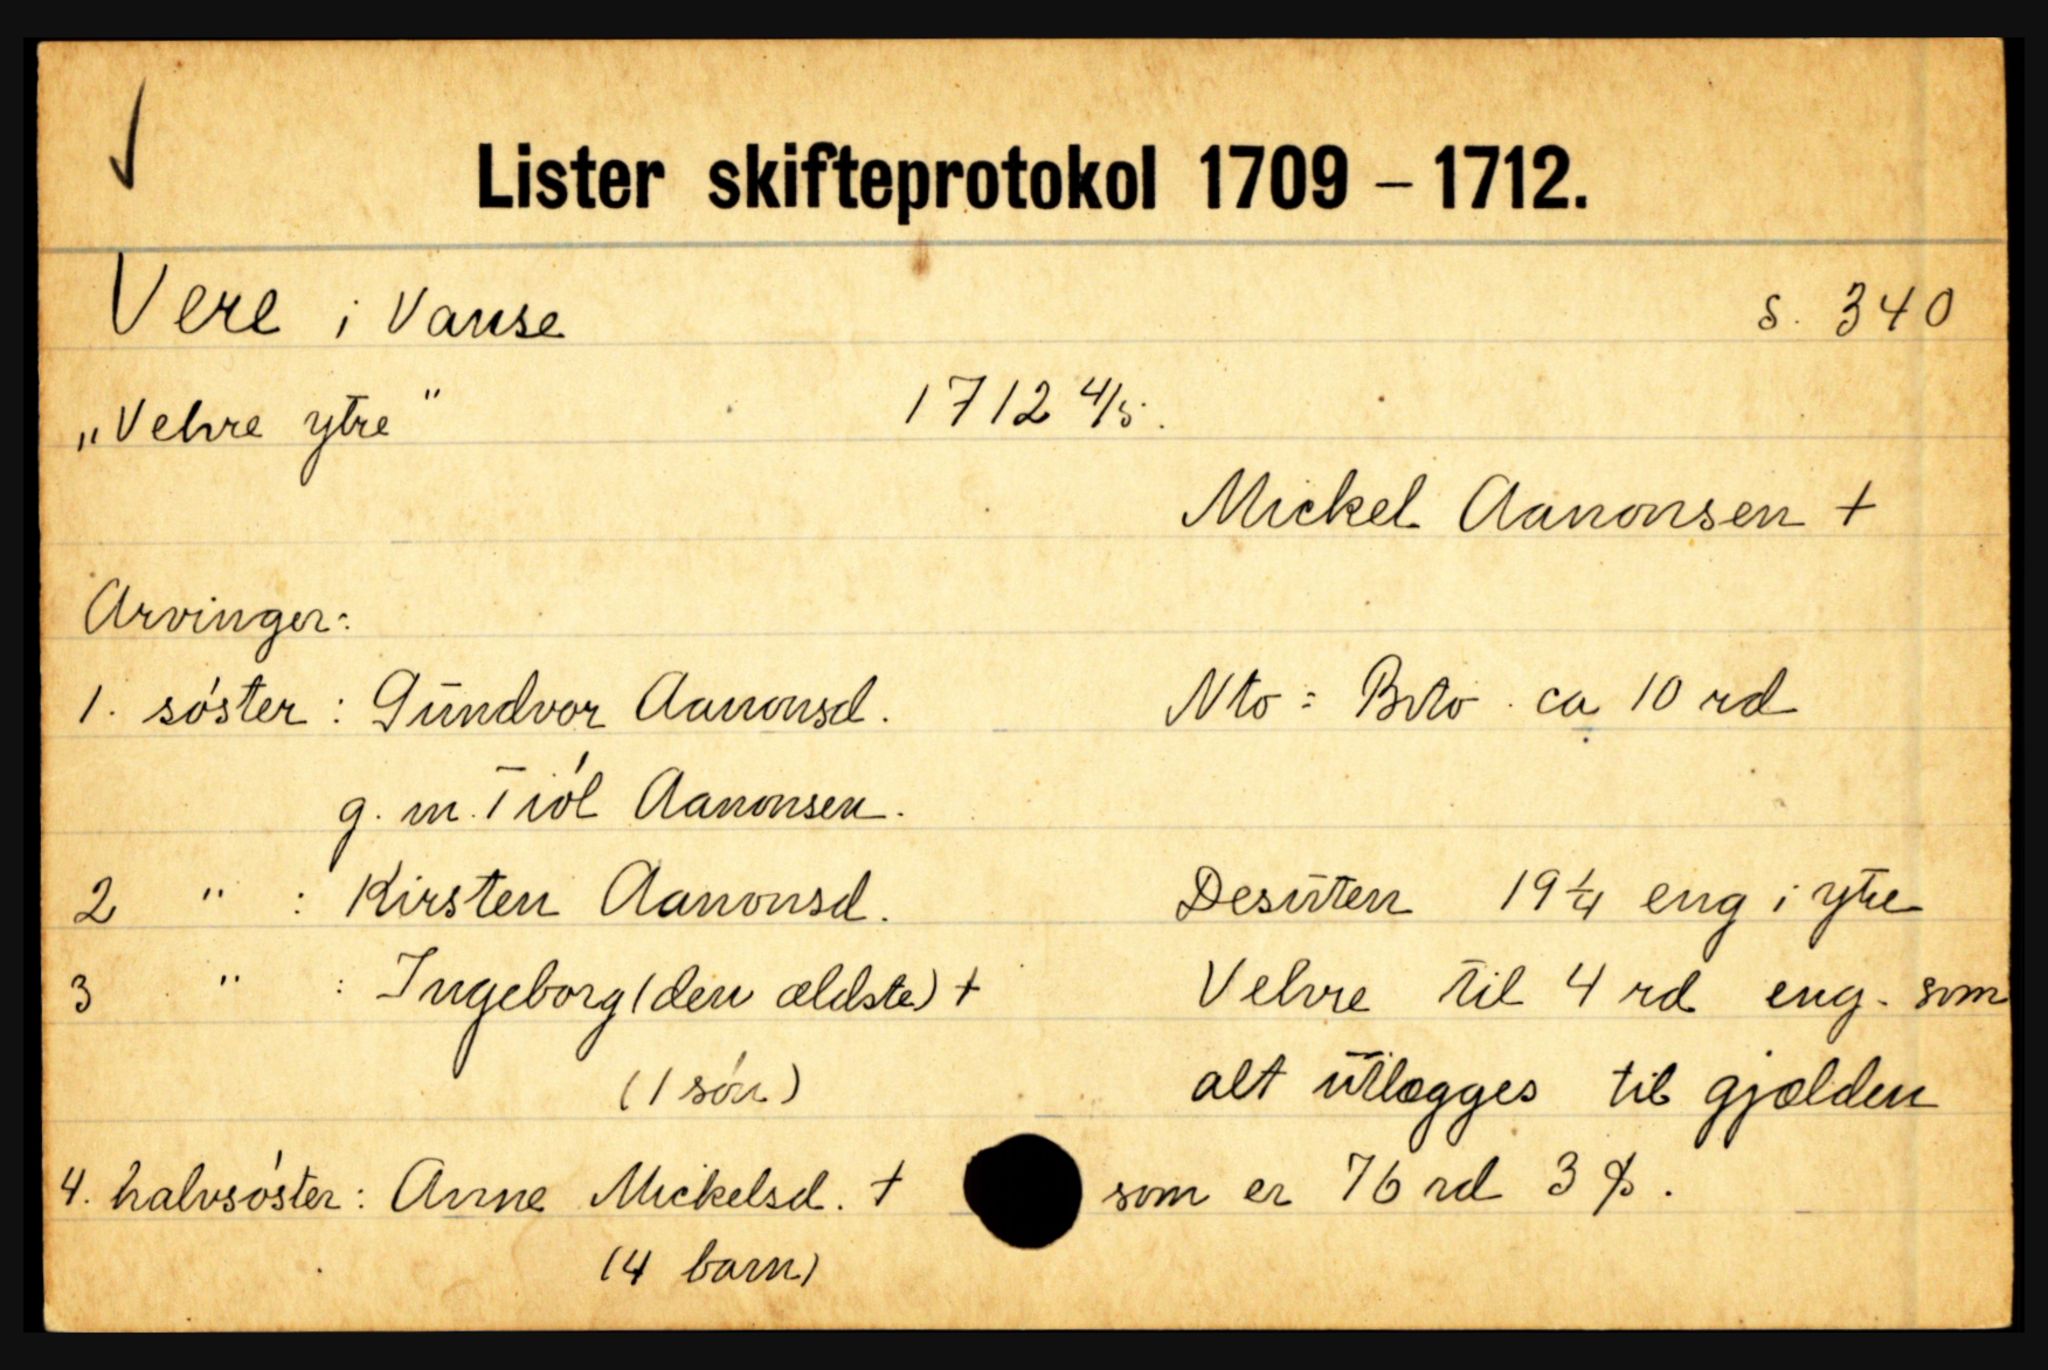 Lister skifteprotokol 1709 – 1712.
Vere i Vanse s. 340
„Vehre ytre" 1712 4/5.
Mickel Aanonsen +
Arvinger:
1. söster : Gūndvor Aanonsd. Nto = Bvto. ca 10 rd
g. m. Tiöl Aanonsen.
2 " : Kirsten Aanonsd. Desūten 19¼ eng i ytre
3 " : Ingeborg (den ældste) + Vehre til 4 rd eng. som
(1 sön) alt ūtlægges til gjælden
4. halvsöster: Anne Mickelsd. + som er 76 rd 3 ß.
(4 barn)